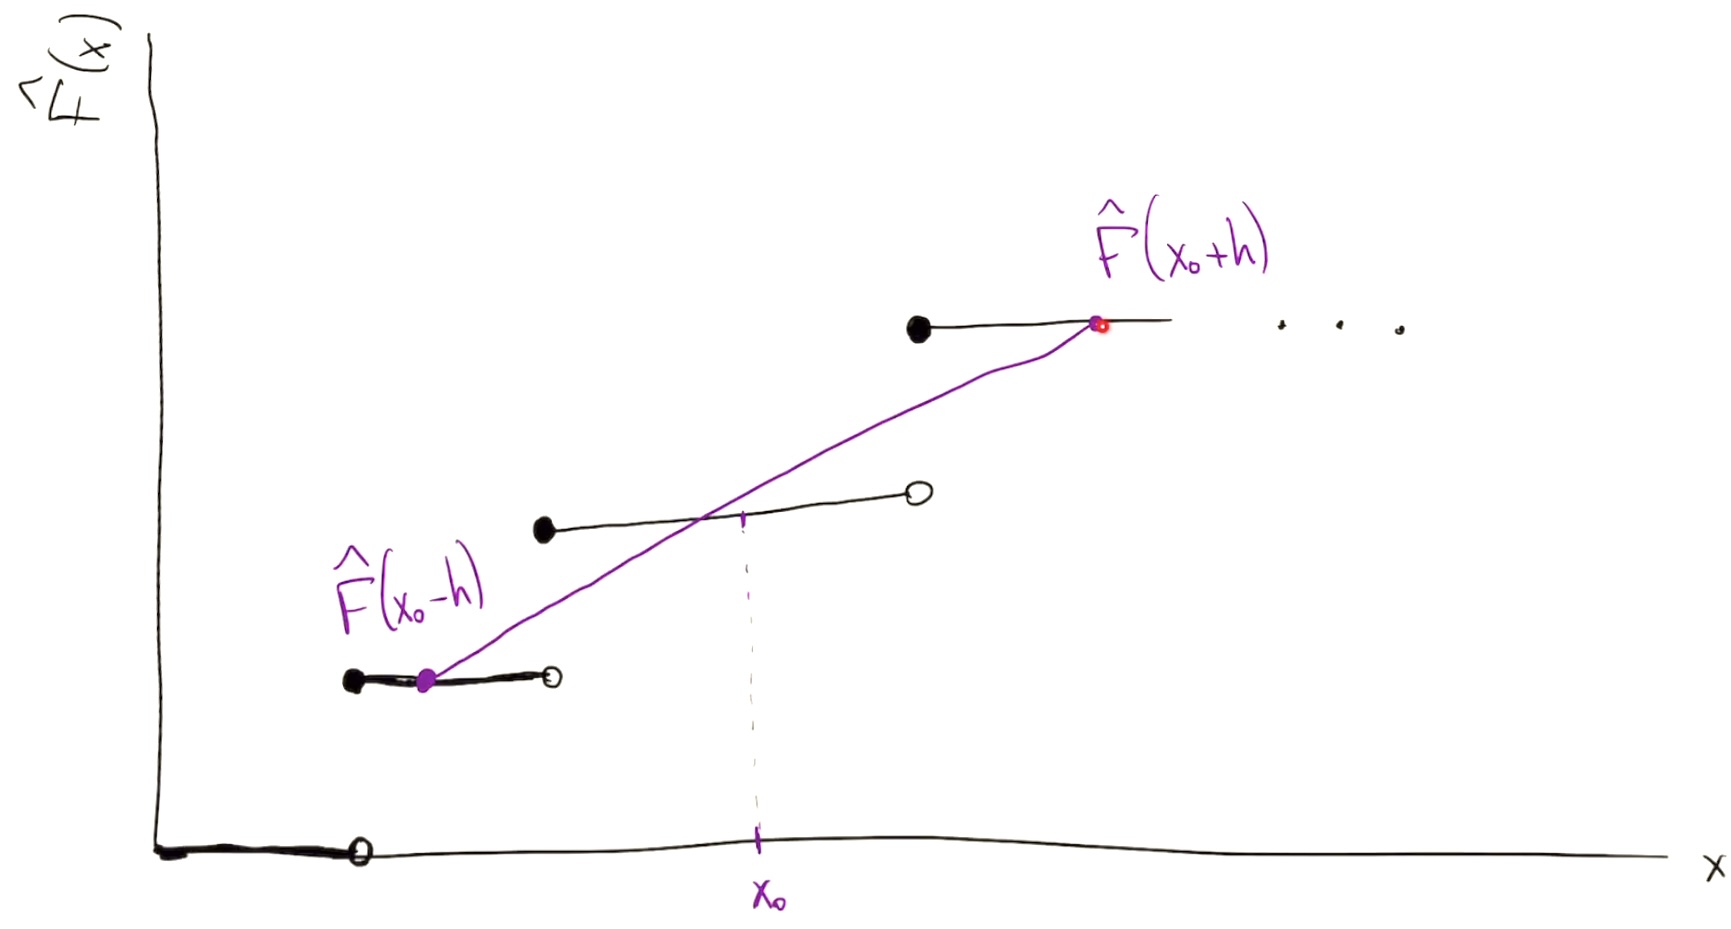 F̂(x)
F̂(x₀+h)
F̂(x₀-h)
x₀
x